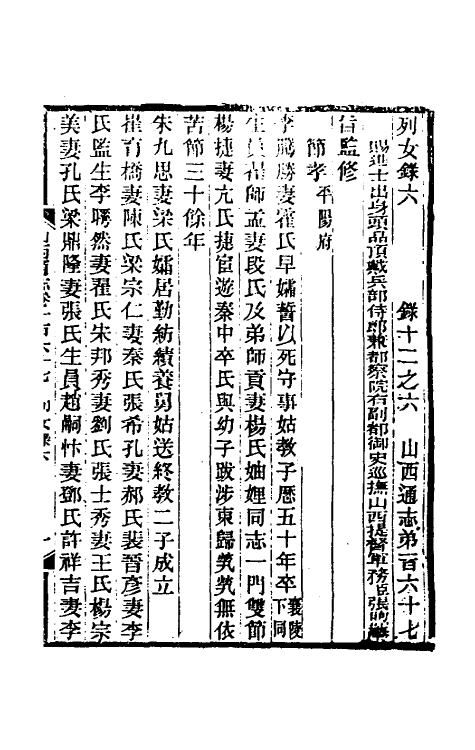 列女錄六 錄十二之六 山西通志弟百六十七
賜進士出身頭品頂戴兵部侍郎兼都察院右副都御史巡撫山西提督軍務臣張煦
旨監修
節孝平陽府
李騰勝妻霍氏早孀誓以死守事姑教子歷五十年卒襄陵下同
生員 師孟妻段氏及弟師貢妻楊氏妯娌同志一門雙節
楊捷妻亢氏捷宦遊秦中卒氏與幼子跋涉東歸煢煢無依
苦節三十餘年
朱九思妻梁氏孀居勤紡績養舅姑送終教二子成立
崔育橋妻陳氏梁宗仁妻秦氏張希孔妻郝氏裴晉彥妻李
氏監生李嘚然妻翟氏朱邦秀妻劉氏張士秀妻王氏楊宗
美妻孔氏梁鼎隆妻張氏生員趙嗣忭妻鄧氏許祥吉妻李
山西通志卷一百六十七 列女錄六 一